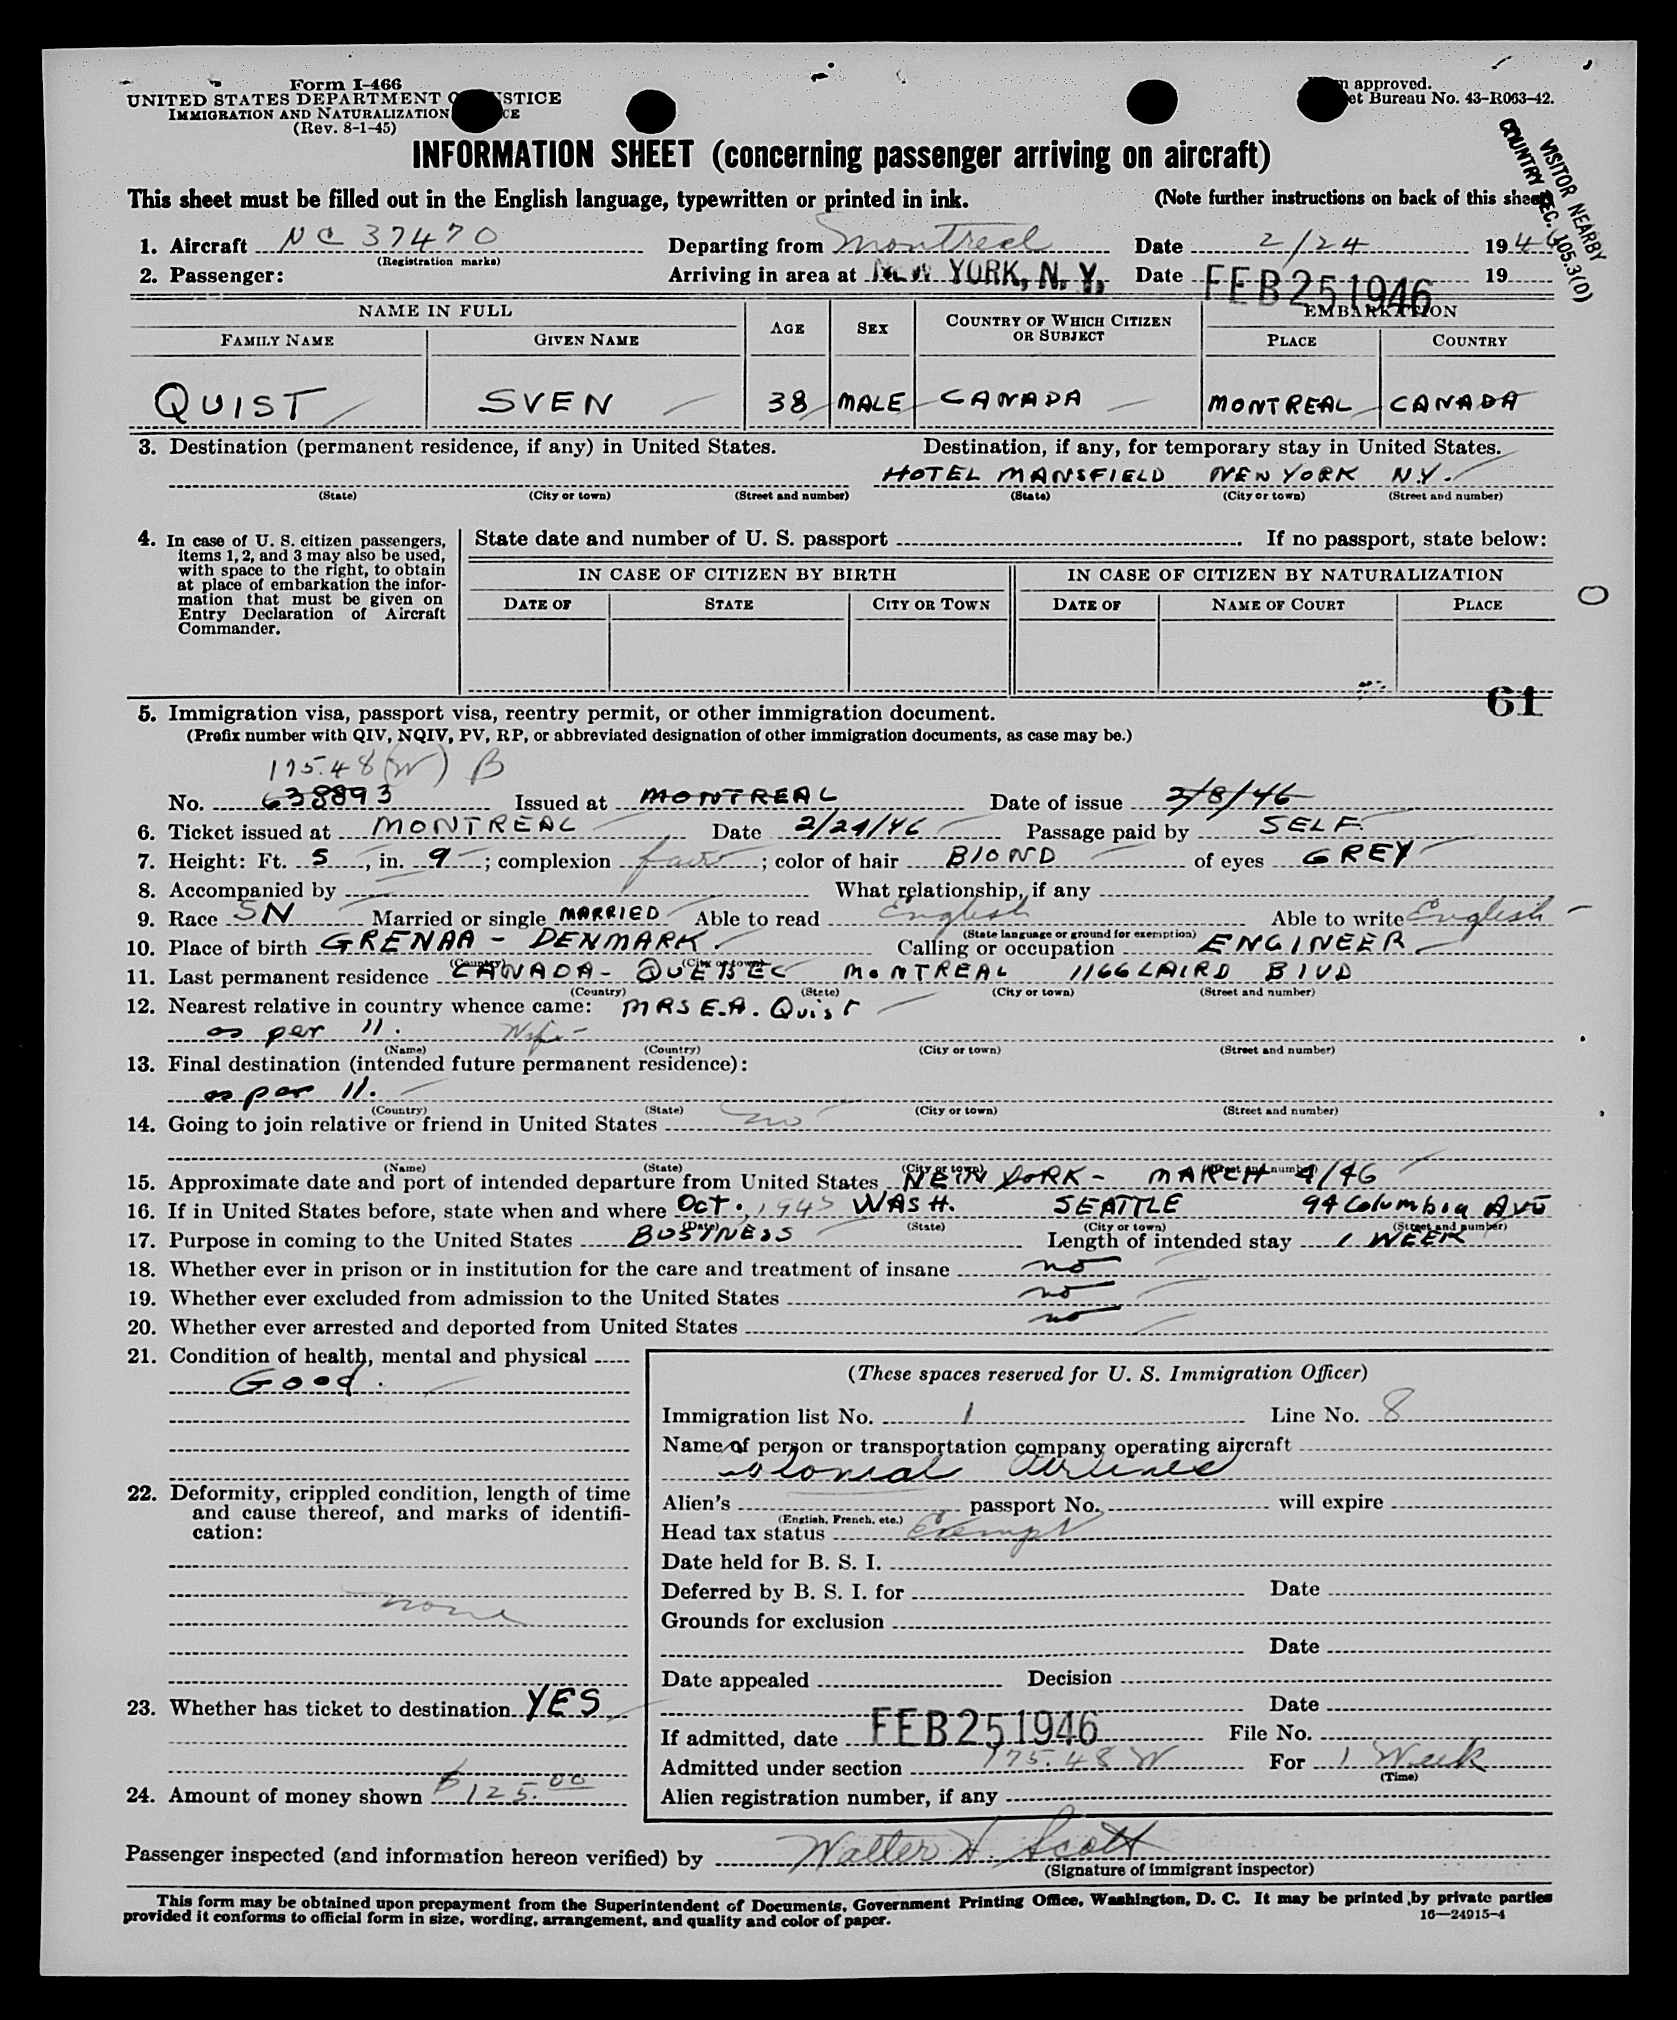 Form I-466
UNITED STATES DEPARTMENT STICE
IMMIGRATION AND NATURALIZATION CE
(Rev. 8-1-45)
approved.
et Bureau No. 43-R063-42.
VISITOR NEARBY
COUNTRY SEC. 105.3(0)
INFORMATION SHEET (concerning passenger arriving on aircraft)
This sheet must be filled out in the English language, typewritten or printed in ink. (Note further instructions on back of this sheet
1. Aircraft NC 37470 Departing from Montreal Date 2/24 1946
(Registration marks)
2. Passenger: Arriving in area at NEW YORK, N. Y. Date FEB 25 1946 19
NAME IN FULL AGE SEX COUNTRY OF WHICH CITIZEN OR SUBJECT EMBARKATION
FAMILY NAME GIVEN NAME PLACE COUNTRY
QUIST SVEN 38 MALE CANADA MONTREAL CANADA
3. Destination (permanent residence, if any) in United States. Destination, if any, for temporary stay in United States.
HOTEL MANSFIELD NEW YORK N.Y.
(State) (City or town) (Street and number) (State) (City or town) (Street and number)
4. In case of U. S. citizen passengers,
items 1, 2, and 3 may also be used,
with space to the right, to obtain
at place of embarkation the infor-
mation that must be given on
Entry Declaration of Aircraft
Commander.
State date and number of U. S. passport If no passport, state below:
IN CASE OF CITIZEN BY BIRTH IN CASE OF CITIZEN BY NATURALIZATION
DATE OF STATE CITY OR TOWN DATE OF NAME OF COURT PLACE
61
5. Immigration visa, passport visa, reentry permit, or other immigration document.
(Prefix number with QIV, NQIV, PV, RP, or abbreviated designation of other immigration documents, as case may be.)
175.48 (W) B
No. 638893 Issued at MONTREAL Date of issue 2/8/46
6. Ticket issued at MONTREAL Date 2/21/46 Passage paid by SELF.
7. Height: Ft. 5, in. 9; complexion fair; color of hair BLOND of eyes GREY
8. Accompanied by What relationship, if any
9. Race SN Married or single MARRIED Able to read English Able to write English
(State language or ground for exemption)
10. Place of birth GRENAA - DENMARK. Calling or occupation ENGINEER
(Country) (City or town)
11. Last permanent residence CANADA - QUEBEC MONTREAL 1166 LAIRD BLVD
(Country) (State) (City or town) (Street and number)
12. Nearest relative in country whence came: MRS E.A. Quist
as per 11. Wife
(Name) (Country) (City or town) (Street and number)
13. Final destination (intended future permanent residence):
as per 11.
(Country) (State) (City or town) (Street and number)
14. Going to join relative or friend in United States no
(Name) (State) (City or town) (Street and number)
15. Approximate date and port of intended departure from United States NEW YORK - MARCH 4/46
16. If in United States before, state when and where OCT. 1945 WASH. SEATTLE 94 Columbia AVE
(Date) (State) (City or town) (Street and number)
17. Purpose in coming to the United States BUSINESS Length of intended stay 1 WEEK
18. Whether ever in prison or in institution for the care and treatment of insane no
19. Whether ever excluded from admission to the United States no
20. Whether ever arrested and deported from United States no
21. Condition of health, mental and physical
Good.
22. Deformity, crippled condition, length of time
and cause thereof, and marks of identifi-
cation:
none
23. Whether has ticket to destination YES
24. Amount of money shown $125.00
(These spaces reserved for U. S. Immigration Officer)
Immigration list No. 1 Line No. 8
Name of person or transportation company operating aircraft
Colonial Airlines
Alien's passport No. will expire
(English, French, etc.)
Head tax status Exempt
Date held for B. S. I.
Deferred by B. S. I. for Date
Grounds for exclusion
Date
Date appealed Decision
Date
If admitted, date FEB 25 1946 File No.
Admitted under section 175.48 W For 1 Week
(Time)
Alien registration number, if any
Passenger inspected (and information hereon verified) by Walter H. Scott
(Signature of immigrant inspector)
This form may be obtained upon prepayment from the Superintendent of Documents, Government Printing Office, Washington, D. C. It may be printed by private parties
provided it conforms to official form in size, wording, arrangement, and quality and color of paper.
16—24915-4